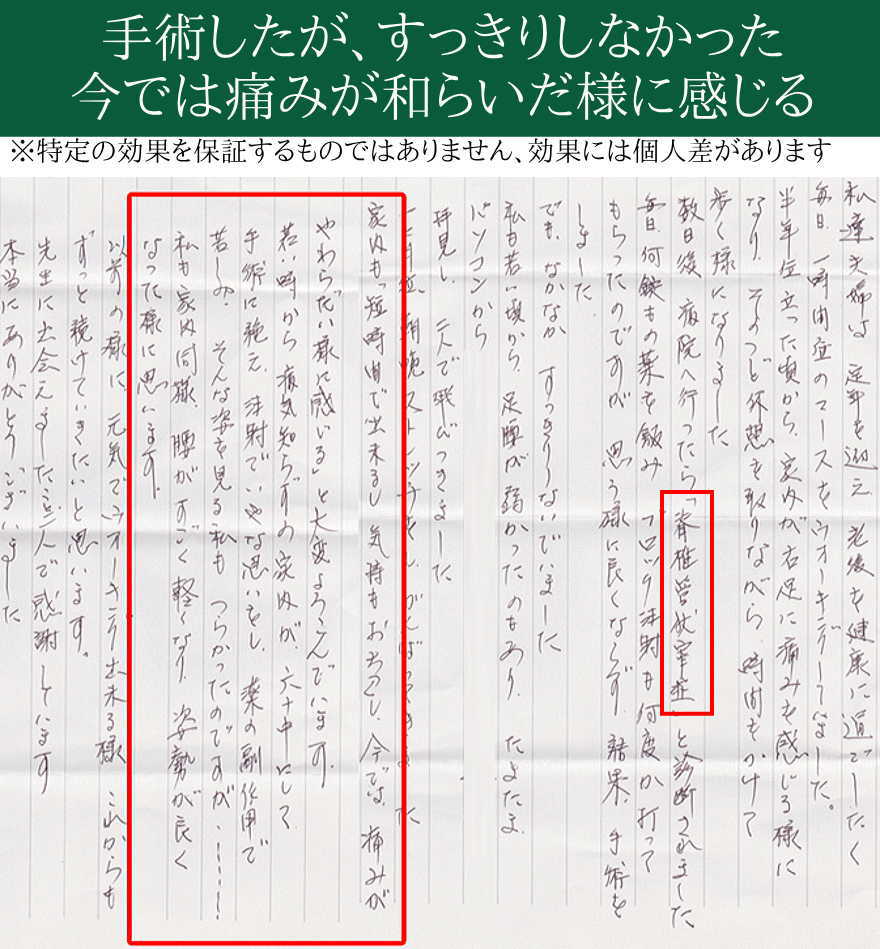 手術したが、すっきりしなかった
今では痛みが和らいだ様に感じる
※特定の効果を保証するものではありません、効果には個人差があります
私達夫婦は 定年を迎え 老後を健康に過ごしたく
毎日 一時間位のコースをウオーキングしていました。
半年位立った頃から、家内が右足に痛みを感じる様に
なり、そのつど休憩を取りながら、時間をかけて
歩く様になりました
数日後 病院へ行ったら「脊椎管状窄症」と診断されました
毎日 何錠もの薬を飲み ブロック注射も何度か打って
もらったのですが 思う様に良くならず 結果、手術を
しました。
でも、なかなか すっきりしないでいました
私も若い頃から、足腰が弱かったのもあり、たまたま
パソコンから
拝見し、二人で飛びつきました
朝晩 ストレッチをし、がんばって
家内も「短時間で出来るし 気持もおちつくし、今では、痛みが
やわらだい様に感じる」と大変よろこんでいます。
若い時から 病気知らずの家内が、六十中にして
手術に絶え、注射でいやな思いをし、薬の副作用で
苦しみ、そんな姿を見る私も つらかったのですが、……
私も家内同様、腰がすごく軽くなり 姿勢が良く
なった様に思います。
以前の様に 元気でウオーキング出来る様 これからも
ずっと続けていきたいと思います。
先生に出会えました 二人で感謝しています
本当にありがとうございました